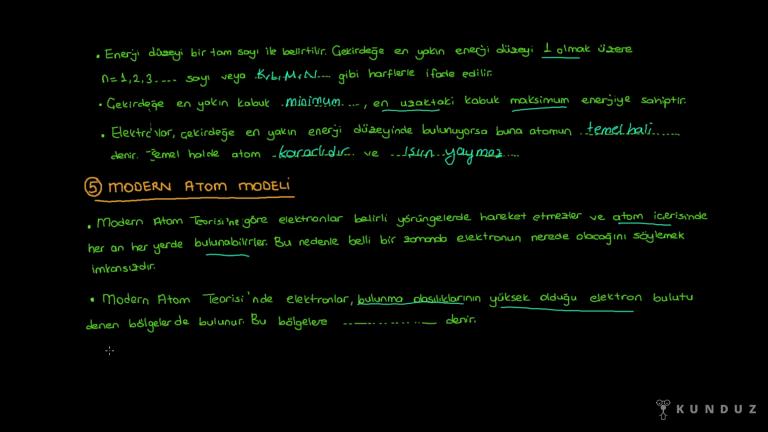 • Enerji düzeyi bir tam sayı ile belirtilir. Çekirdeğe en yakın enerji düzeyi 1 olmak üzere
n=1,2,3.... sayı veya K,L,M,N... gibi harflerle ifade edilir.
• Çekirdeğe en yakın kabuk ..minimum...., en uzaktaki kabuk maksimum enerjiye sahiptir.
• Elektronlar, çekirdeğe en yakın enerji düzeyinde bulunuyorsa buna atomun ..temel hali......
denir. Temel halde atom ..kararlıdır.. ve ...ışın yaymaz....
5 MODERN ATOM MODELİ
• Modern Atom Teorisi'ne göre elektronlar belirli yörüngelerde hareket etmezler ve atom içerisinde
her an her yerde bulunabilirler. Bu nedenle belli bir zamanda elektronun nerede olacağını söylemek
imkansızdır.
• Modern Atom Teorisi'nde elektronlar, bulunma olasılıklarının yüksek olduğu elektron bulutu
denen bölgelerde bulunur. Bu bölgelere .................. denir.
KUNDUZ